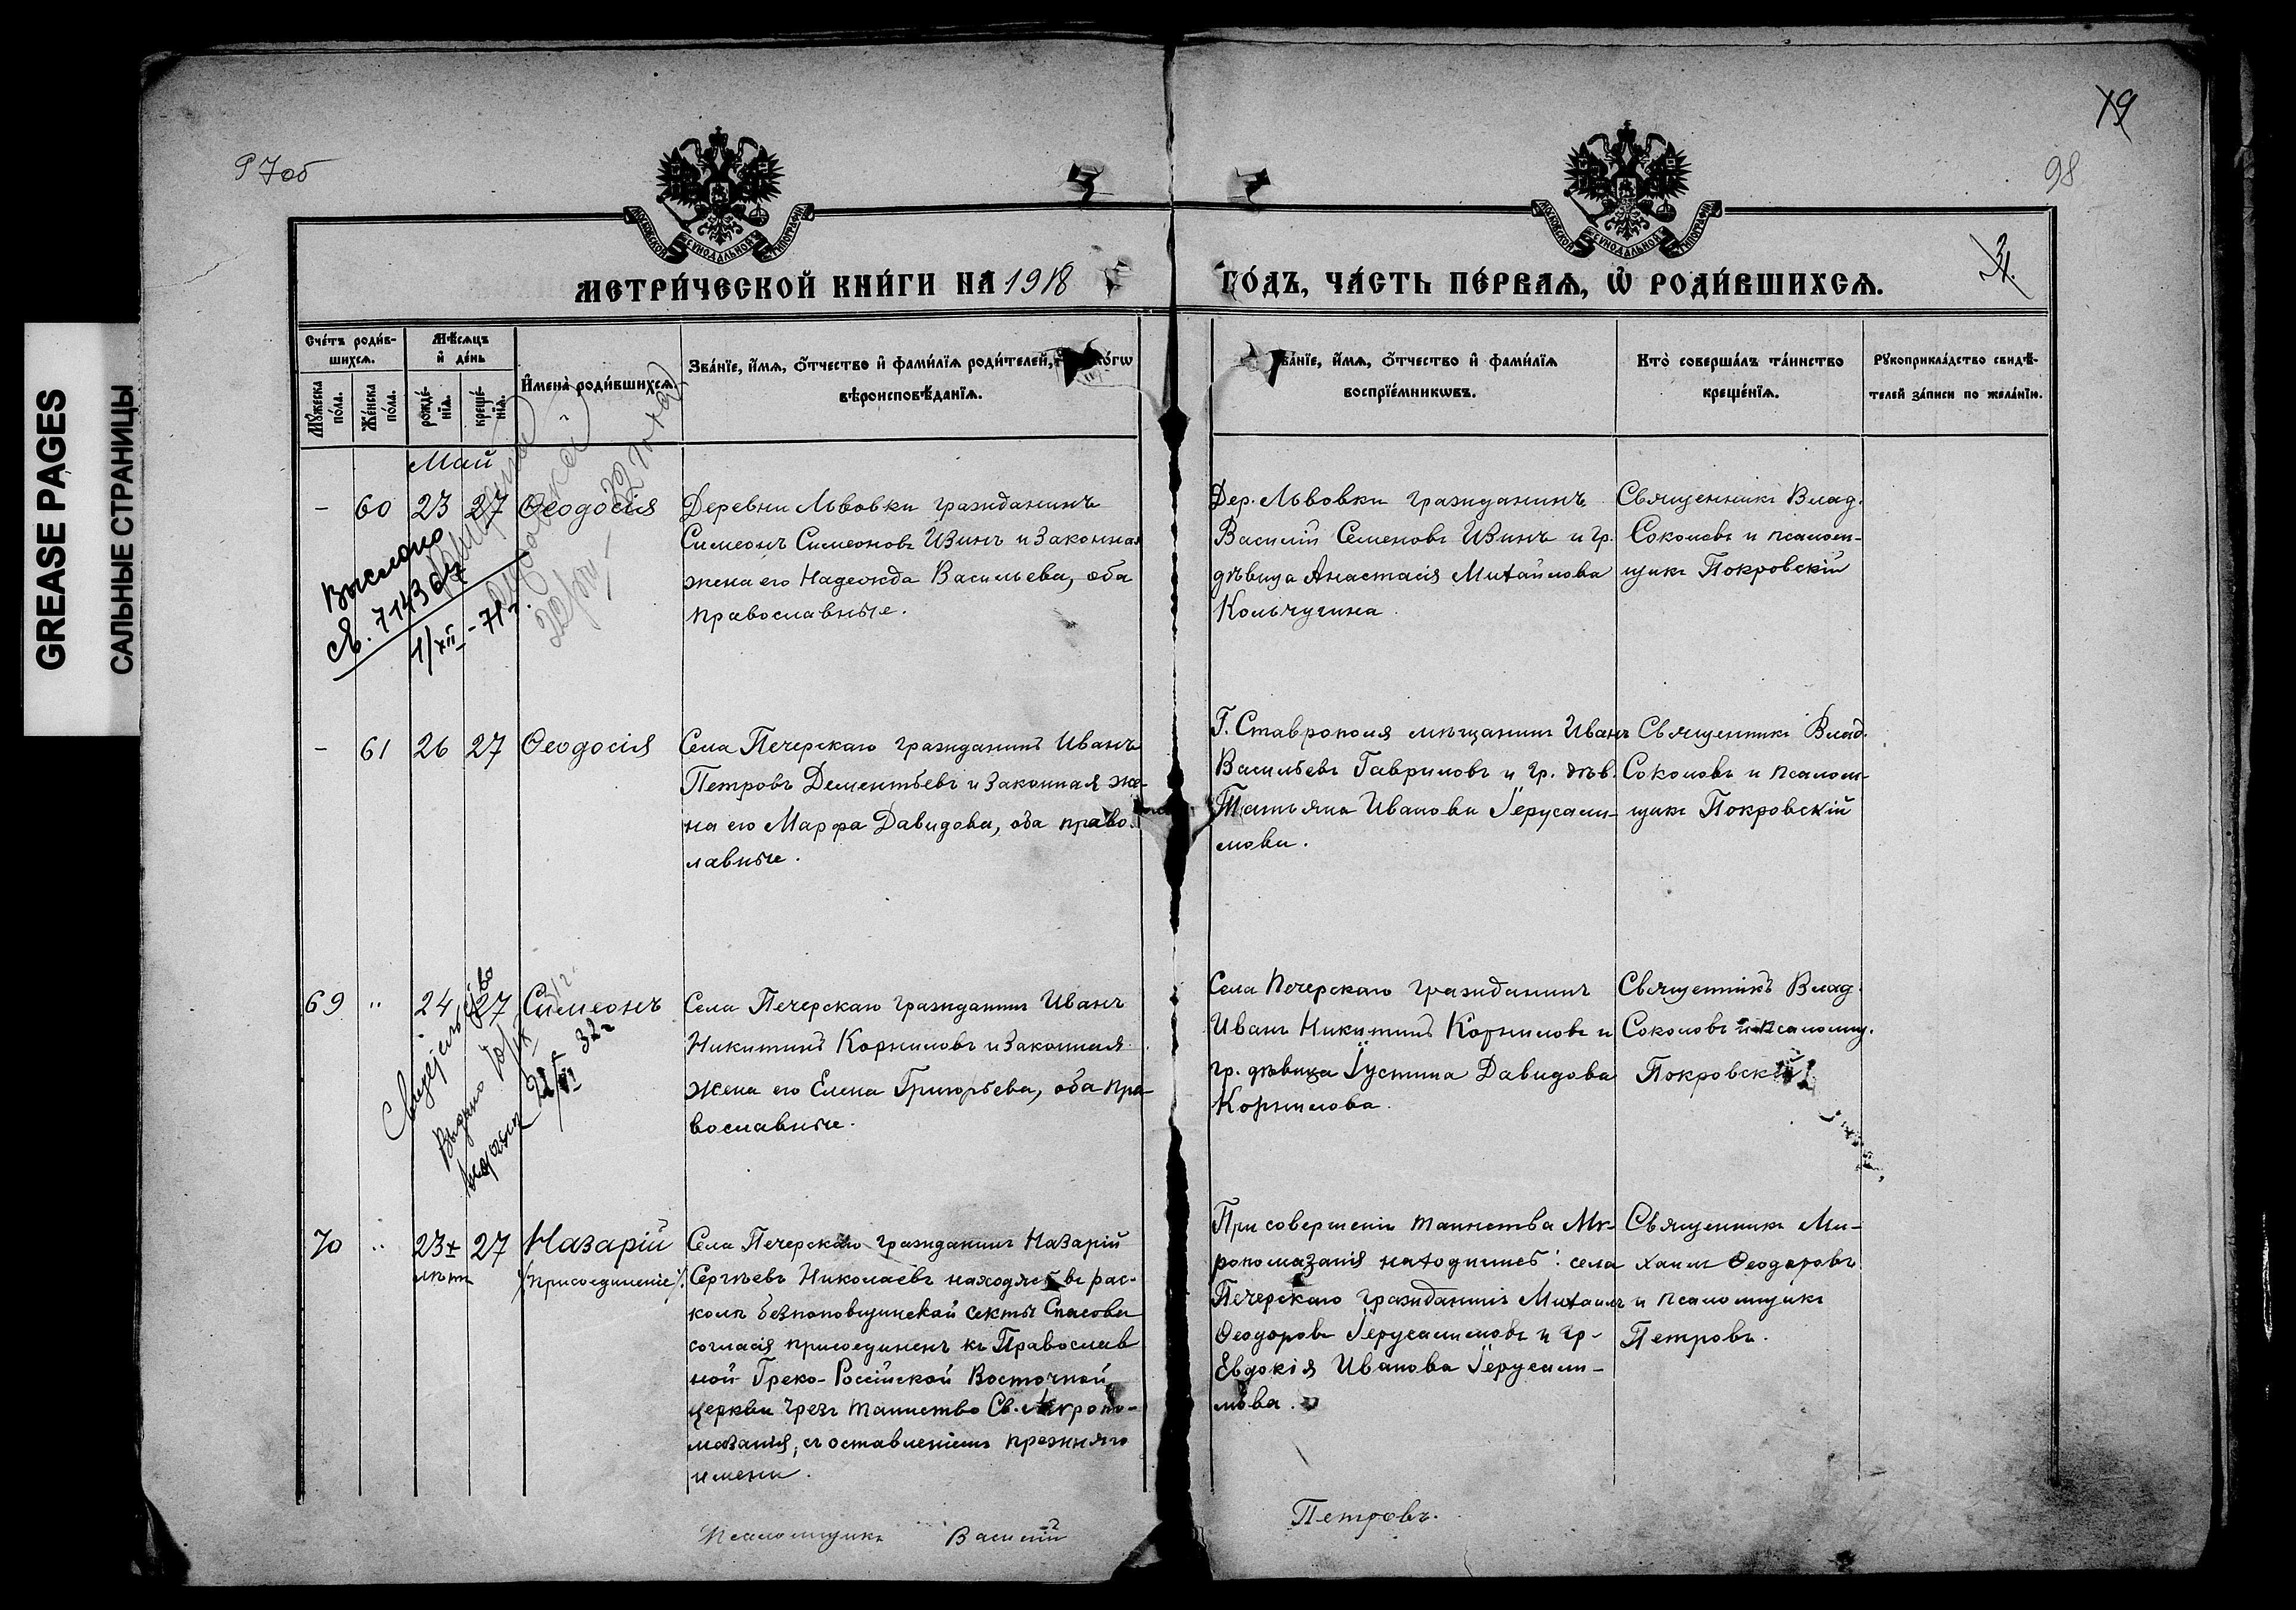 GREASE PAGES
САЛЬНЫЕ СТРАНИЦЫ
97об
19
98
31.
МОСКОВСКОЙ СѴНОДАЛЬНОЙ ТИПОГРАФІИ
МОСКОВСКОЙ СѴНОДАЛЬНОЙ ТИПОГРАФІИ
МЕТРИ́ЧЕСКОЙ КНИ́ГИ НА 1918
ГО́ДЪ, ЧА́СТЬ ПЕ́РВАѦ, Ѿ РОДИ́ВШИХСѦ.
Сче́тъ роди́в-
шихсѧ.
Мꙋ́жеска
по́ла.
Же́нска
пола.
Мѣ́сѧцъ
и҆ де́нь
рожде́-
нїѧ.
креще́-
нїѧ.
И҆мена̀ роди́вшихсѧ.
Зва́нїе, и҆́мѧ, ѻ҆́тчество и҆ фами́лїѧ роди́телей,
вѣроисповѣ́данїѧ.
и҆́мѧ, ѻ҆́тчество и҆ фами́лїѧ
воспрїе́мникѡвъ.
Кто̀ соверша́лъ та́инство
креще́нїѧ.
Рꙋкоприкла́дство свидѣ́-
телей за́писи по жела́нїю.
Май
– 60 23 27 Ѳеодосія
Деревни Львовки гражданинъ
Симеонъ Симеоновъ Изинъ и законная
жена его Надежда Васильева, оба
православные.
Дер. Львовки гражданинъ
Василій Семеновъ Изинъ и гр.
дѣвица Анастасія Михайлова
Кольчугина.
Священникъ Влад.
Соколовъ и псалом-
щикъ Покровскій
Выслано
св. 7143 04
1/XII - 71г.
– 61 26 27 Ѳеодосія
Села Печерскаго гражданинъ Иванъ
Петровъ Дементьевъ и законная же-
на его Марфа Давидова, оба правос-
лавные.
Г. Ставрополя мѣщанинъ Иванъ
Васильевъ Гавриловъ и гр. дѣв.
Татьяна Иванова Іерусали-
мова.
Священникъ Влад.
Соколовъ и псалом-
щикъ Покровскій
69 " 24 27 Симеонъ
Села Печерскаго гражданинъ Иванъ
Никитинъ Корниловъ и законная
жена его Елена Григорьева, оба пра-
вославные.
Села Печерскаго гражданинъ
Иванъ Никитинъ Корниловъ и
гр. дѣвица Іустина Давидова
Корнилова.
Священникъ Влад.
Соколовъ и псаломщ.
Покровскій
Свидѣтельство
Выдано
32г
70 " 23х 27 Назарій
лѣтъ /присоединеніе/.
Села Печерскаго гражданинъ Назарій
Сергѣевъ Николаевъ находясь въ рас-
колѣ безпоповщинской секты Спасова
согласія присоединенъ къ Православ
ной Греко-Россійской Восточной
церкви чрезъ таинство Св. Мѵропо-
мазанія, съ оставленіемъ прежняго
имени.
При совершеніи таинства Мѵ-
ропомазанія находились: села
Печерскаго гражданинъ Михаилъ
Ѳеодоровъ Іерусалимовъ и гр.
Евдокія Иванова Іерусали-
мова.
Священникъ Ми-
хаилъ Ѳеодоровъ
и псаломщикъ
Петровъ.
Псаломщикъ Василій Петровъ.